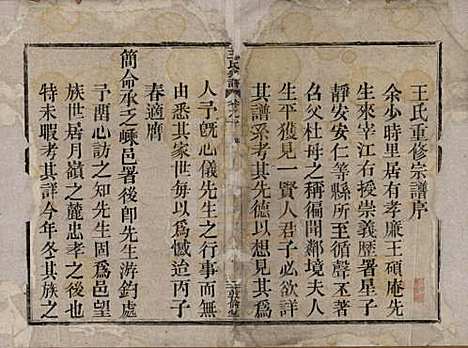 王氏重修宗譜序
余少時里居有孝廉王碩庵先
生來宰江右授崇義歷署星子
靜安安仁等縣所至循聲丕著
召父杜母之稱徧聞鄰境夫人
生平獲見一賢人君子必欲詳
其譜系考其先德以想見其
人予旣心儀先生之行事而無
由悉其家世每以爲憾迨丙子
春適膺
簡命承乏嵊邑署後卽先生游釣處
予留心訪之知先生固爲邑望
族世居月嶺之麓忠孝之後也
特未暇考其詳今年冬其族之